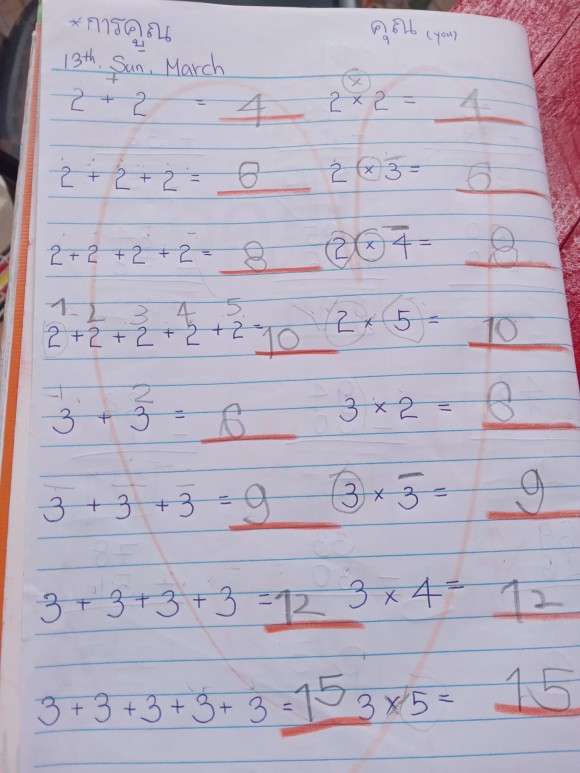 *การคูณ คุณ (you)
13th. Sun. March
2 + 2 = 4 2 × 2 = 4
2 + 2 + 2 = 6 2 × 3 = 6
2 + 2 + 2 + 2 = 8 2 × 4 = 8
1 2 3 4 5
2 + 2 + 2 + 2 + 2 = 10 2 × 5 = 10
1 2
3 + 3 = 6 3 × 2 = 6
3 + 3 + 3 = 9 3 × 3 = 9
3 + 3 + 3 + 3 = 12 3 × 4 = 12
3 + 3 + 3 + 3 + 3 = 15 3 × 5 = 15